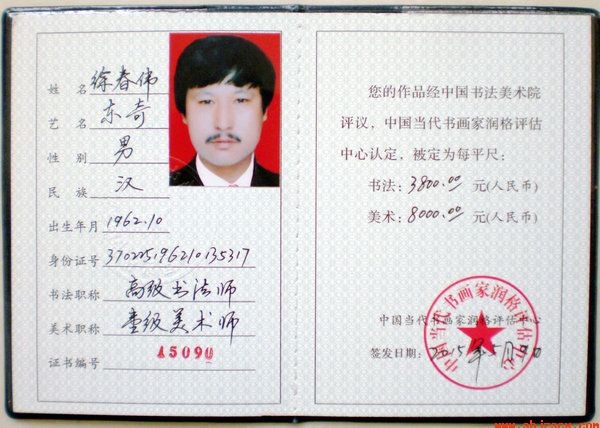 姓 名 徐春伟
艺 名 东奇
性 别 男
民 族 汉
出生年月 1962.10
身份证号 370225196210135317
书法职称 高级书法师
美术职称 壹级美术师
证书编号 15090
您的作品经中国书法美术院
评议，中国当代书画家润格评估
中心认定，被定为每平尺：
书法：3800.00 元(人民币)
美术：8000.00 元(人民币)
中国当代书画家润格评估中心
签发日期： 2015年5月
中国当代书画家润格评估中心